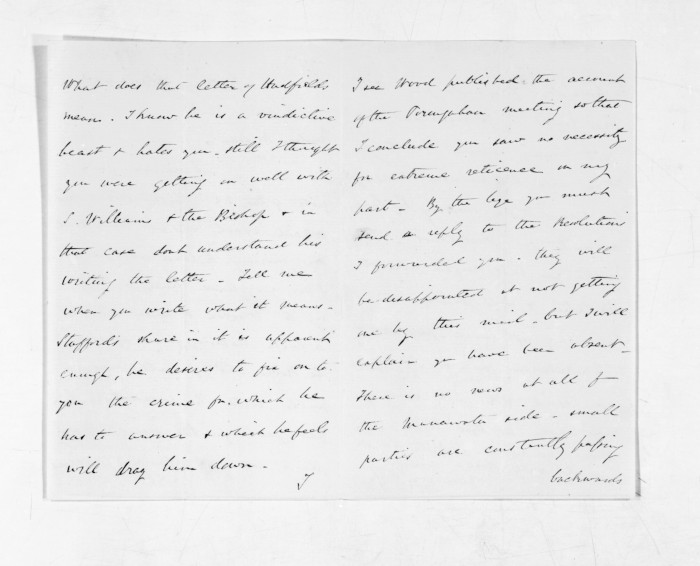 What does that letter of Hadfields
mean. I know he is a vindictive
beast & hates you. still I thought
you were getting on well with
S. Williams & the Bishop & in
that case dont understand his
writing the letter - Tell me
when you write what it means -
Staffords share in it is apparent
enough, he desires to fix on to
you the crime for which he
has to answer & which he feels
will drag him down -
I see Wood published the account
of the meeting so that
I conclude you saw no necessity
for extreme reticence on my
part - By the bye you must
send a reply to the Resolutions
I forwarded you - they will
be disappointed at not getting
one by this mail - but I will
explain you have been absent -
There is no news at all
the Manawatu side - small
parties are constantly passing
backwards